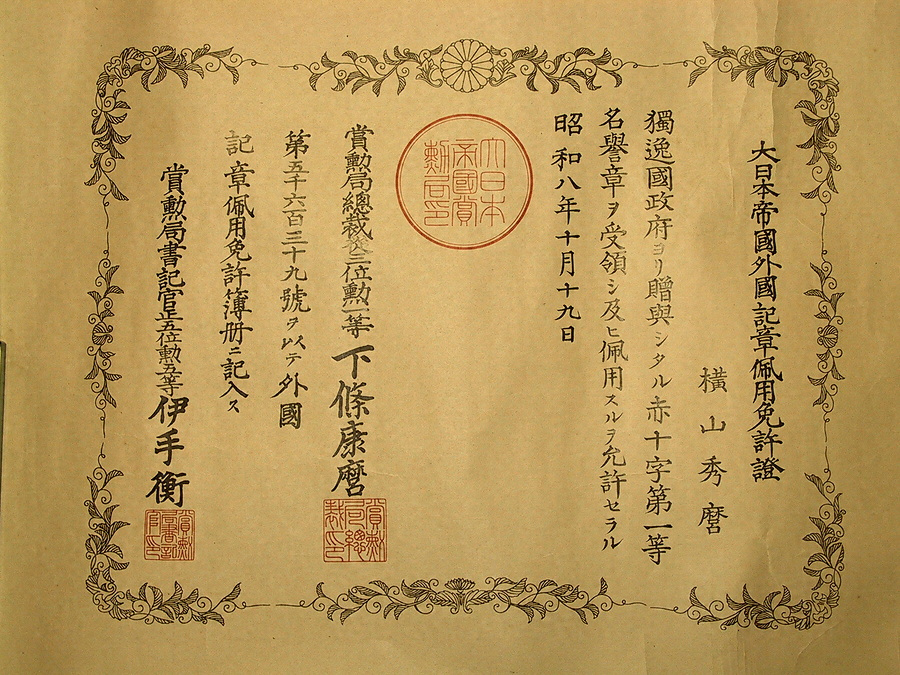 大日本帝國外國記章佩用免許證
横山秀麿
獨逸國政府ヨリ贈與シタル赤十字第一等
名譽章ヲ受領シ及ヒ佩用スルヲ允許セラル
昭和八年十月十九日
大日本
帝國賞
勲局印
賞勲局總裁從三位勲一等下條康麿
賞勲
局總
裁印
第五千六百三十九號ヲ以テ外國
記章佩用免許簿册ニ記入ス
賞勲局書記官正五位勲五等伊手衡
賞勲
局書記
官印